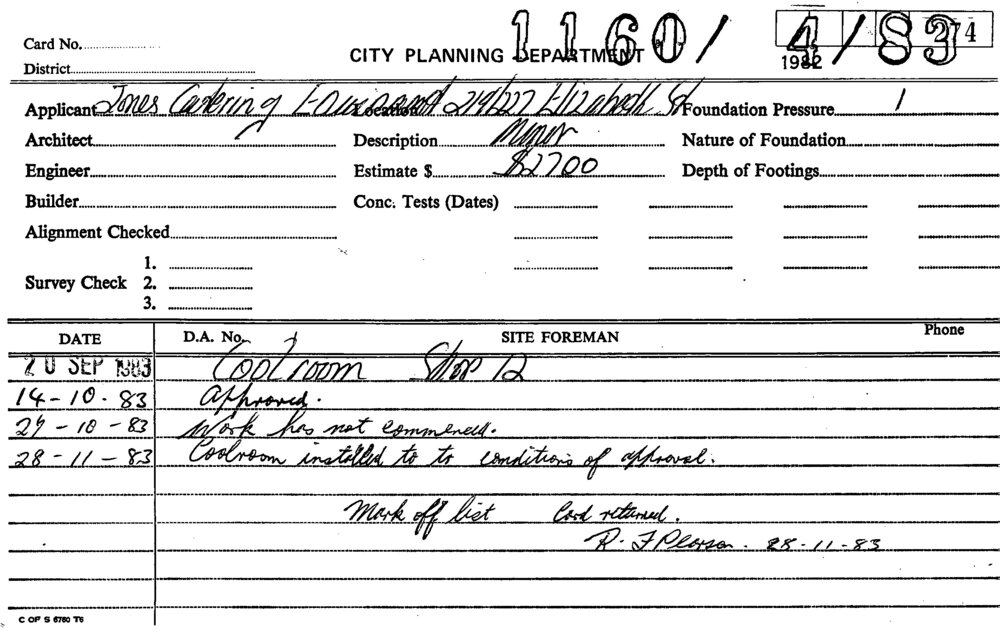 Card No. 1160/ 4/83 274
CITY PLANNING DEPARTMENT 1982
District
Applicant Jones Catering Location 219/227 Elizabeth St Foundation Pressure /
Architect Description Minor Nature of Foundation
Engineer Estimate $ $2700 Depth of Footings
Builder Conc. Tests (Dates)
Alignment Checked
1.
Survey Check 2.
3.
DATE D.A. No. SITE FOREMAN Phone
20 SEP 1983 Coolroom Shop 12
14-10-83 Approved.
27-10-83 Work has not commenced.
28-11-83 Coolroom installed to to conditions of approval.
Mark off list Card returned.
R. F Pearson. 28-11-83
C OF S 6760 T6